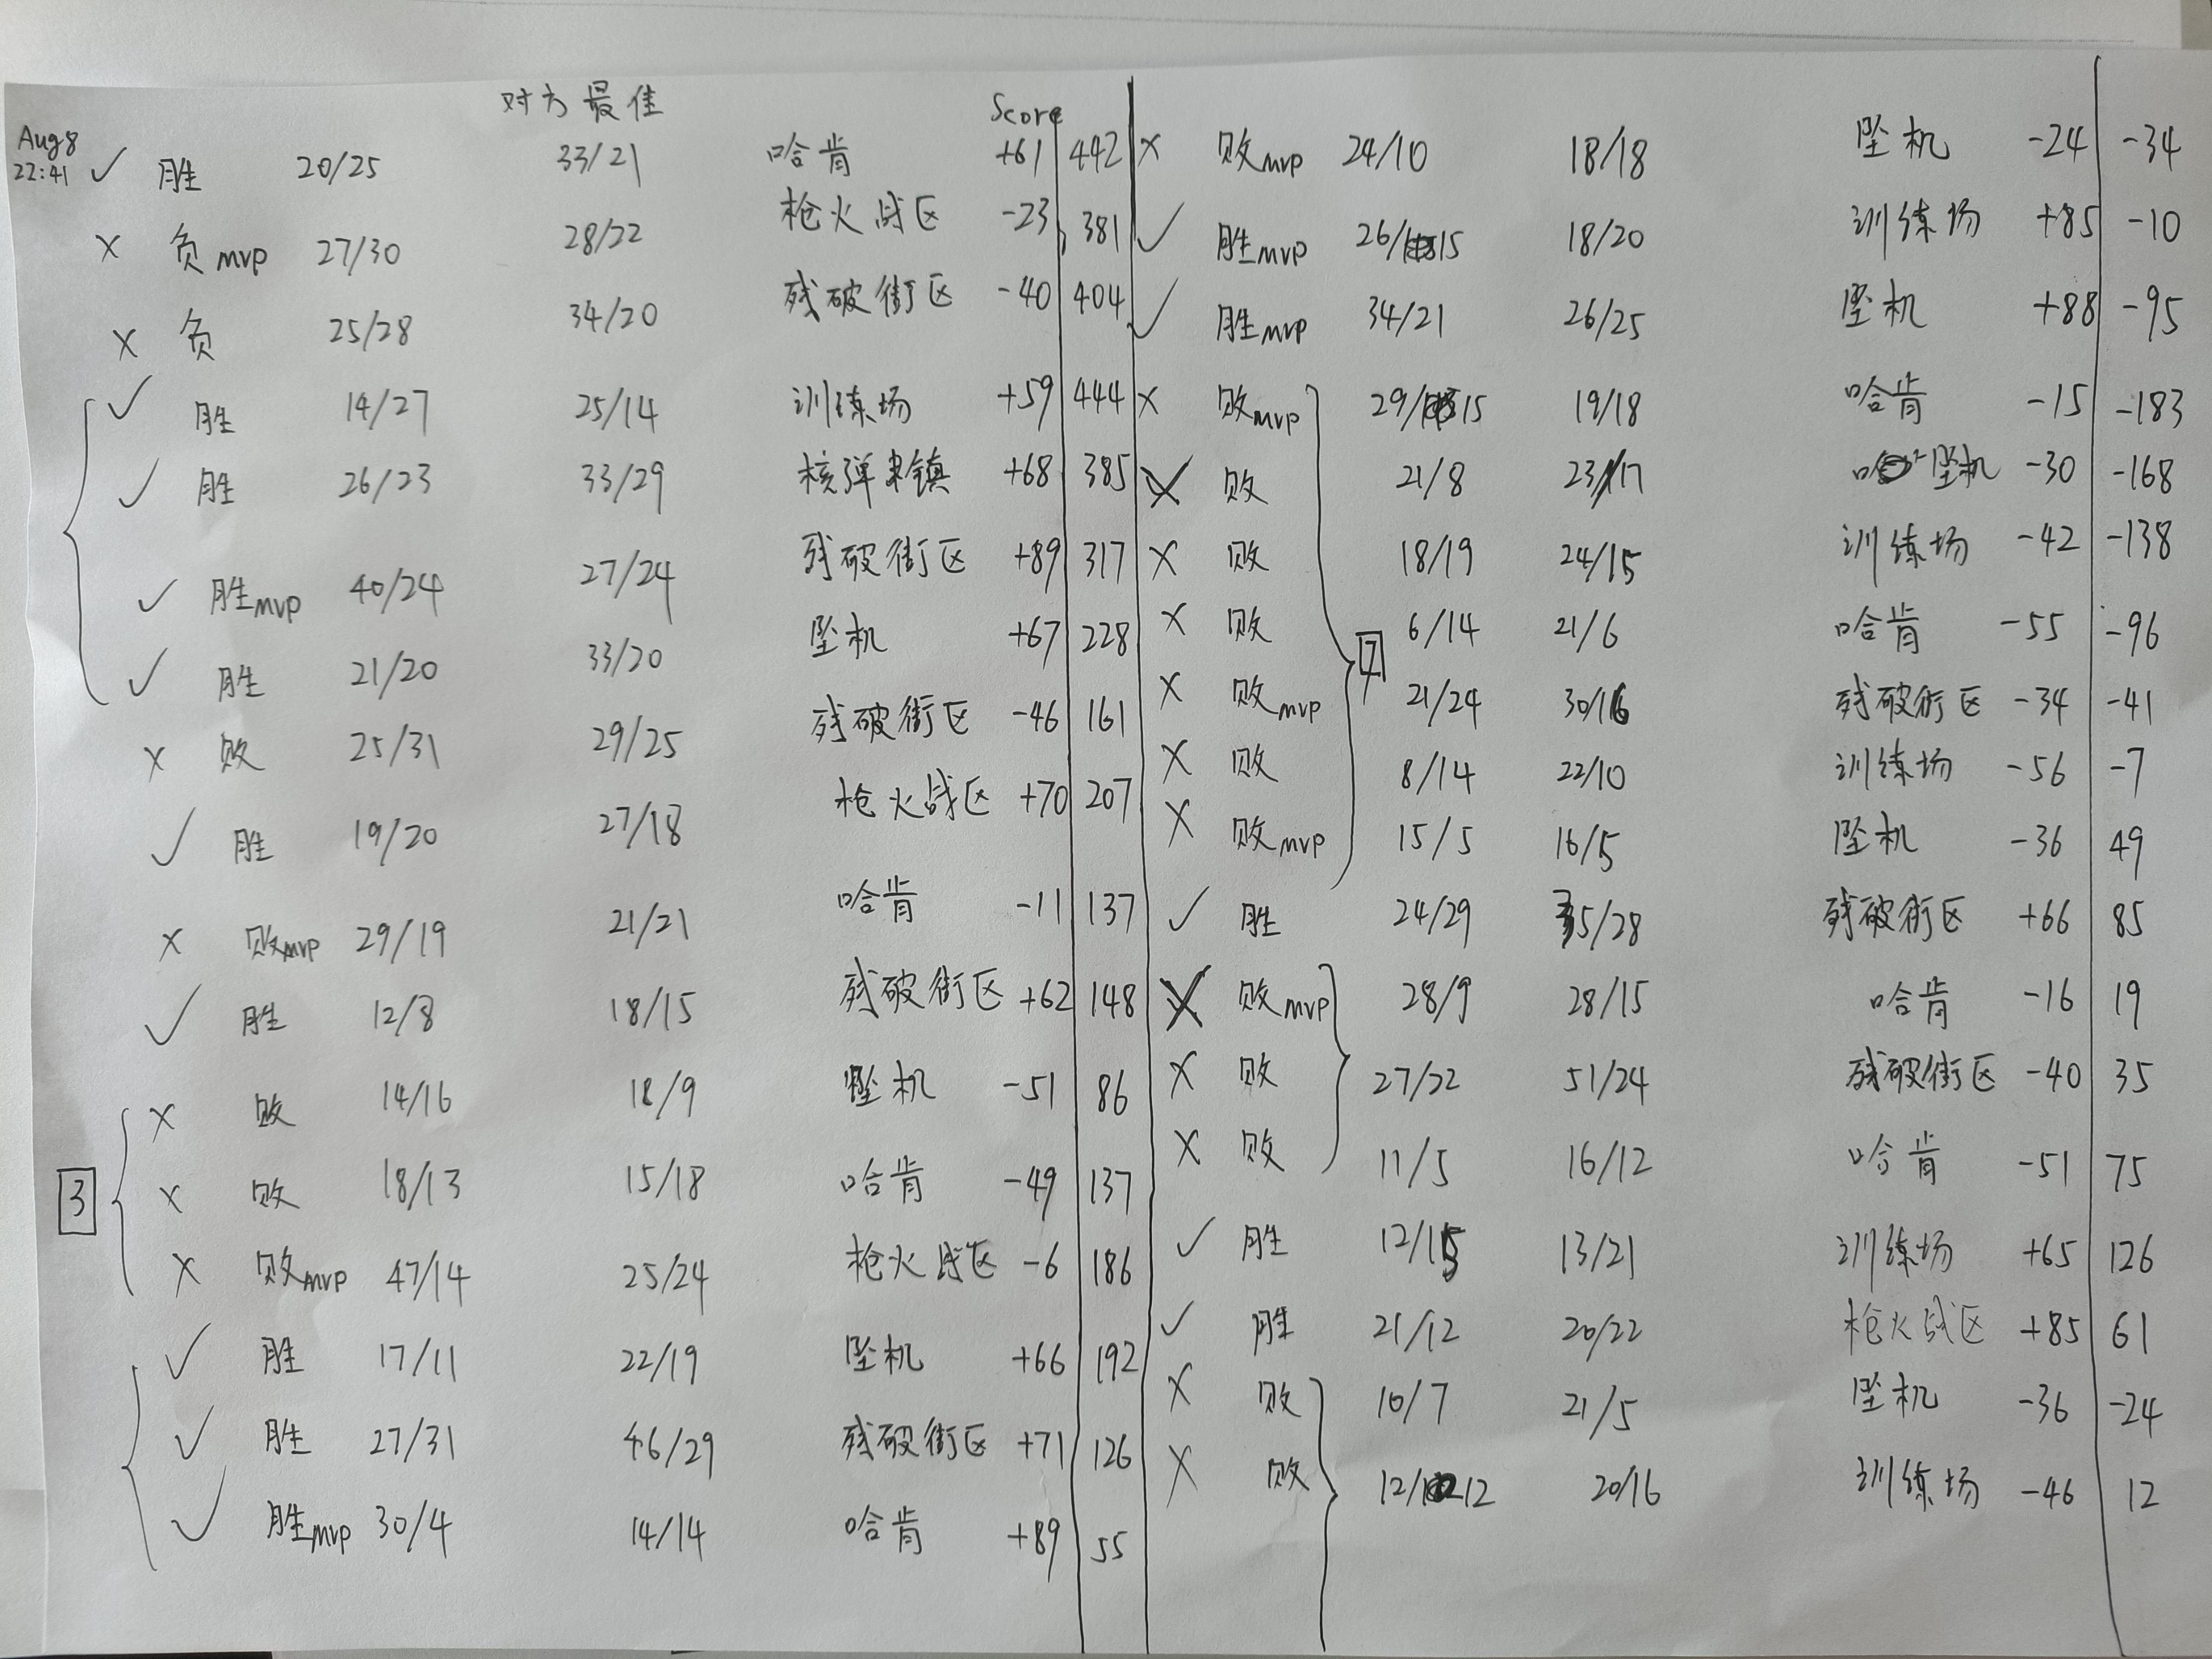 对方最佳 Score
Aug 8
22:41 ✓ 胜 20/25 33/21 哈肯 +61 442
× 负mvp 27/30 28/22 枪火战区 -23 381
× 负 25/28 34/20 残破街区 -40 404
✓ 胜 14/27 25/14 训练场 +59 444
✓ 胜 26/23 33/29 核弹镇 +68 385
✓ 胜mvp 40/24 27/24 残破街区 +89 317
✓ 胜 21/20 33/20 坠机 +67 228
× 败 25/31 29/25 残破街区 -46 161
✓ 胜 19/20 27/18 枪火战区 +70 207
× 败mvp 29/19 21/21 哈肯 -11 137
✓ 胜 12/8 18/15 残破街区 +62 148
× 败 14/16 18/9 坠机 -51 86
3 × 败 18/13 15/18 哈肯 -49 137
× 败mvp 47/14 25/24 枪火战区 -6 186
✓ 胜 17/11 22/19 坠机 +66 192
✓ 胜 27/31 46/29 残破街区 +71 126
✓ 胜mvp 30/4 14/14 哈肯 +89 55
× 败mvp 24/10 18/18 坠机 -24 -34
✓ 胜mvp 26/15 18/20 训练场 +85 -10
✓ 胜mvp 34/21 26/25 坠机 +88 -95
× 败mvp 29/15 19/18 哈肯 -15 -183
× 败 21/8 23/17 坠机 -30 -168
× 败 18/19 24/15 训练场 -42 -138
× 败 6/14 21/6 哈肯 -55 -96
7
× 败mvp 21/24 30/16 残破街区 -34 -41
× 败 8/14 22/10 训练场 -56 -7
× 败mvp 15/5 16/5 坠机 -36 49
✓ 胜 24/29 35/28 残破街区 +66 85
× 败mvp 28/9 28/15 哈肯 -16 19
× 败 27/22 51/24 残破街区 -40 35
× 败 11/5 16/12 哈肯 -51 75
✓ 胜 12/15 13/21 训练场 +65 126
✓ 胜 21/12 20/22 枪火战区 +85 61
× 败 10/7 21/5 坠机 -36 -24
× 败 12/12 20/16 训练场 -46 12